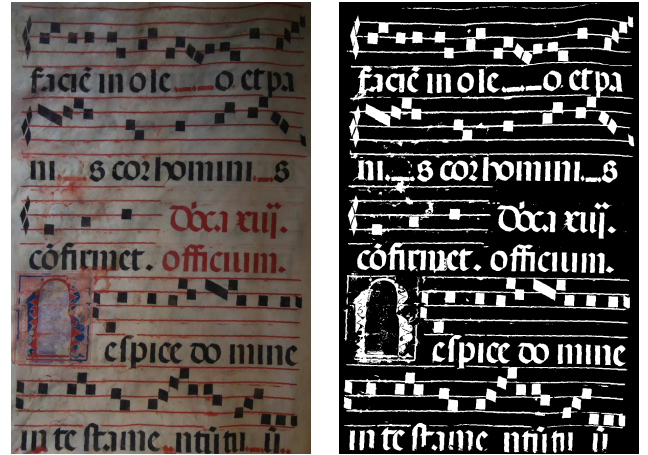 faciē in ole_._o et pa
ni._s cor homini._s
Dōca xiij.
cōfirmet. officium.
Respice domine
in testame_ntū tu_ū
faciē in ole_._o et pa
ni._s cor homini._s
Dōca xiij.
cōfirmet. officium.
Respice domine
in testame ntū tu ū